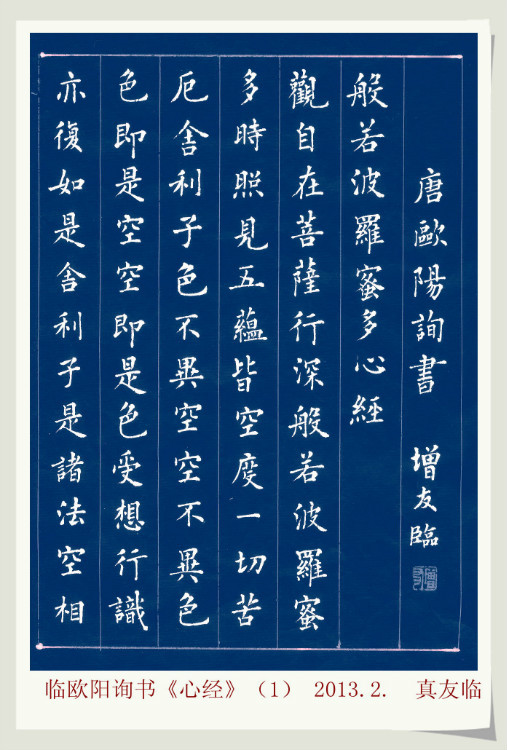 唐歐陽詢書 增友臨
般若波羅蜜多心經
觀自在菩薩行深般若波羅蜜
多時照見五蘊皆空度一切苦
厄舍利子色不異空空不異色
色即是空空即是色受想行識
亦復如是舍利子是諸法空相
临欧阳询书《心经》（1） 2013.2. 真友临